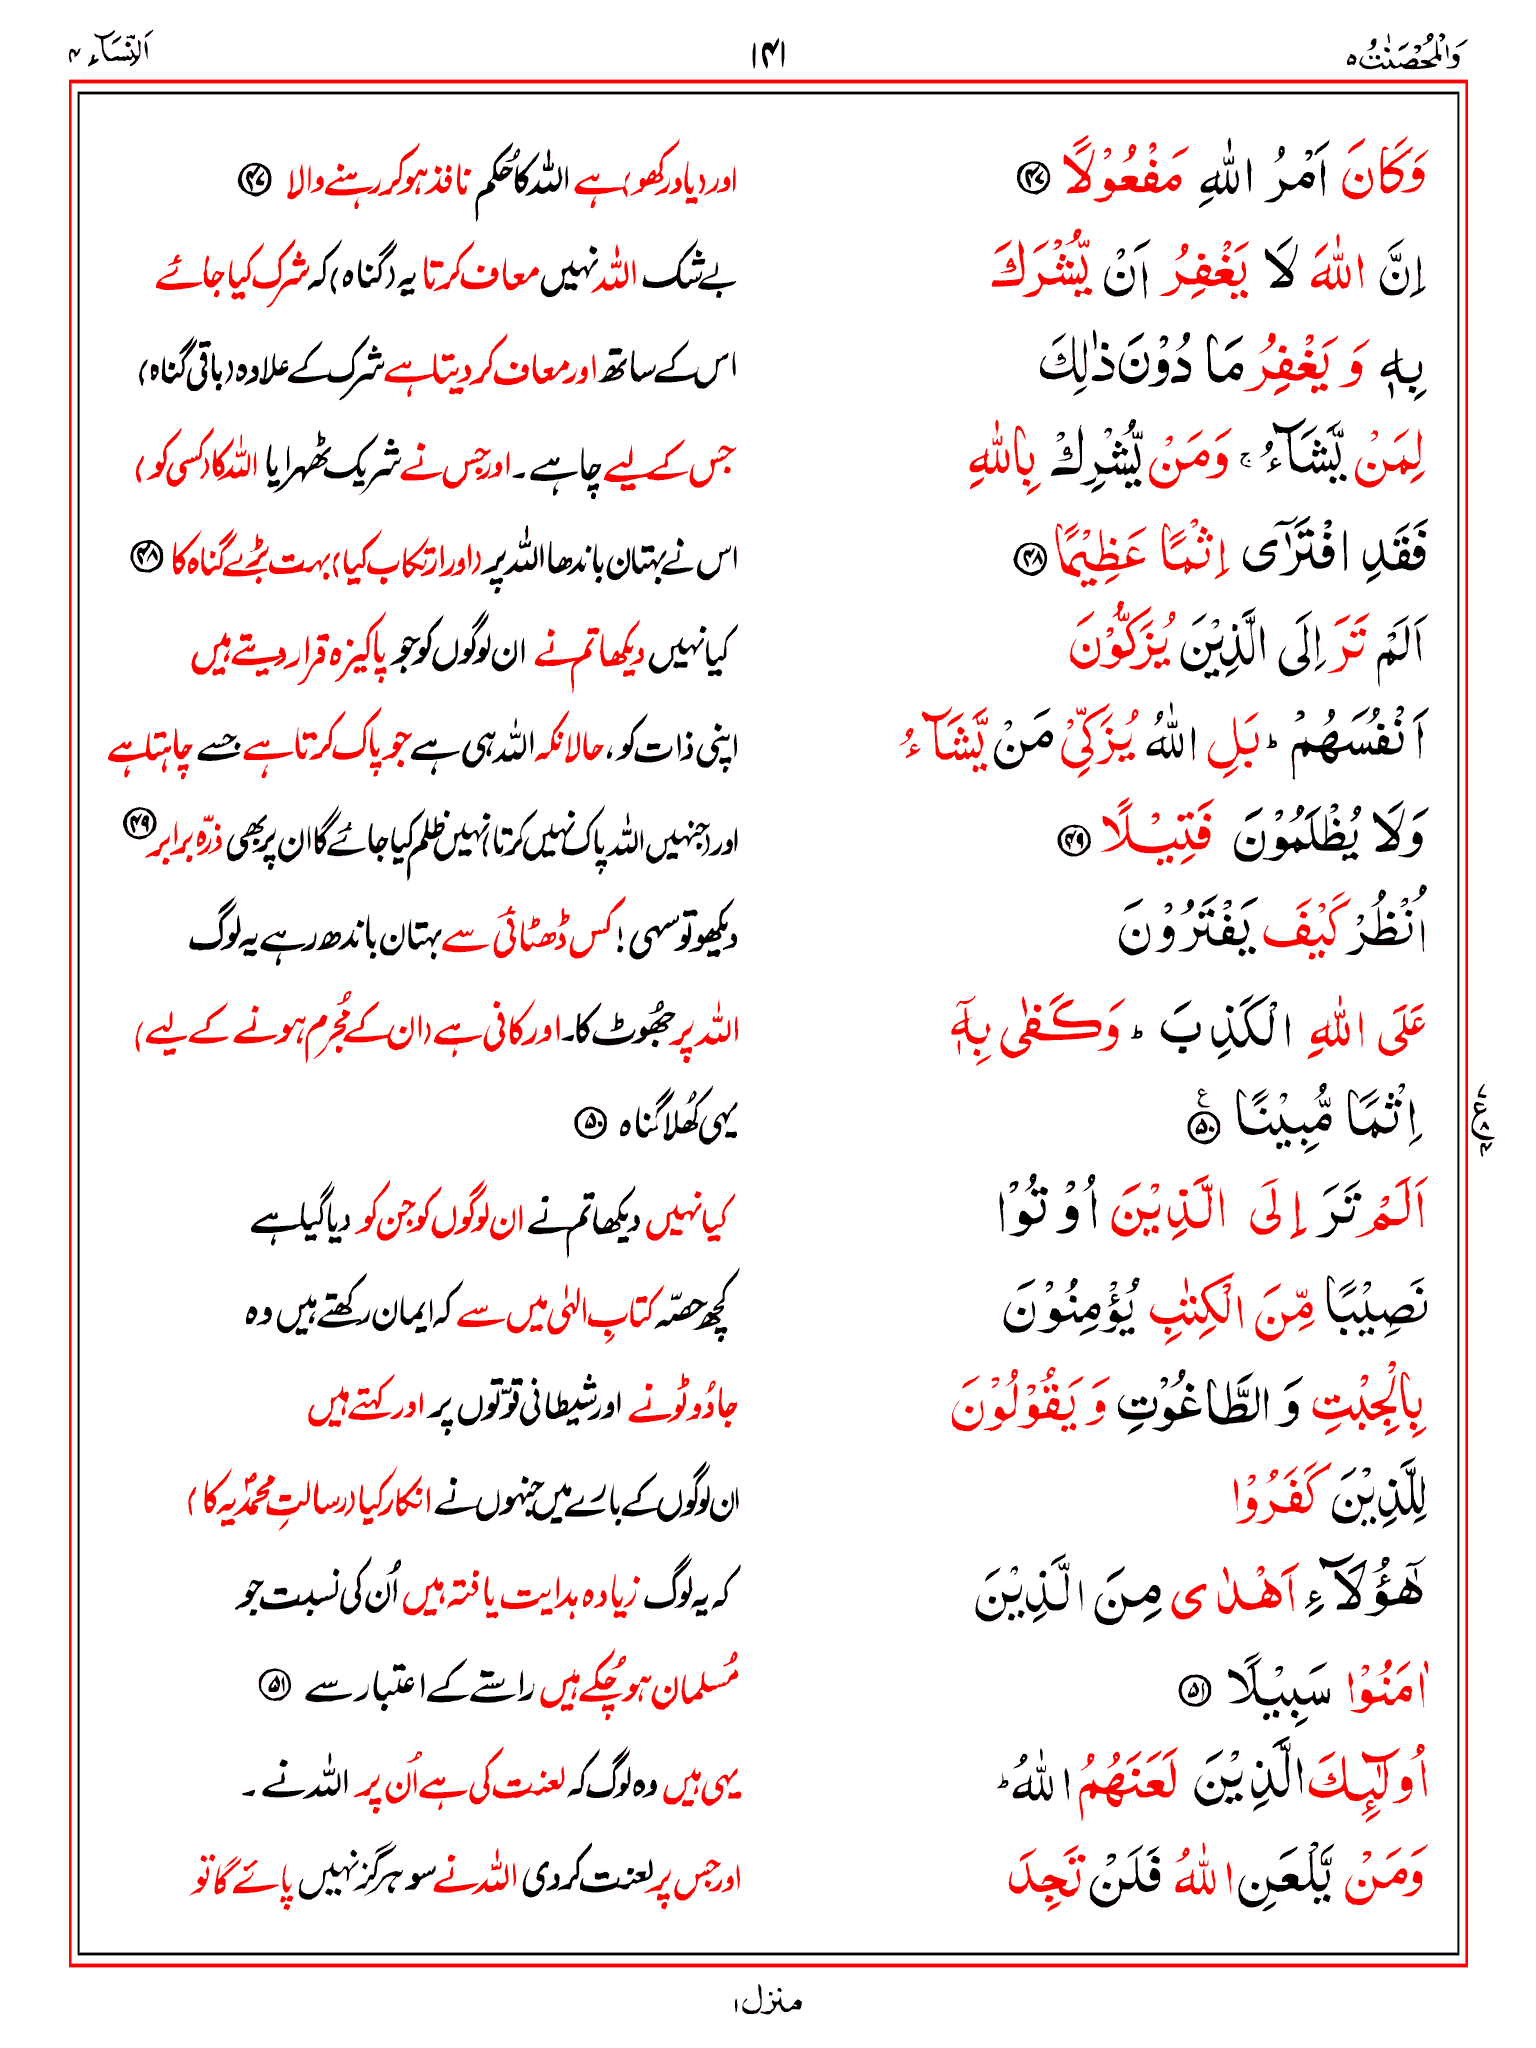 وَالْمُحْصَنٰتُ ۵
۱۴۱
اَلنِّسَآء ۴
وَكَانَ اَمْرُ اللّٰهِ مَفْعُوْلًا ﴿۴۷﴾
اور (یاد رکھو) ہے اللہ کا حُکم نافذ ہو کر رہنے والا ﴿۴۷﴾
اِنَّ اللّٰهَ لَا يَغْفِرُ اَنْ يُّشْرَكَ
بے شک اللہ نہیں معاف کرتا یہ (گناہ) کہ شرک کیا جائے
بِهٖ وَ يَغْفِرُ مَا دُوْنَ ذٰلِكَ
اس کے ساتھ اور معاف کر دیتا ہے شرک کے علاوہ (باقی گناہ)
لِمَنْ يَّشَآءُ ۚ وَمَنْ يُّشْرِكْ بِاللّٰهِ
جس کے لیے چاہے۔ اور جس نے شریک ٹھہرایا اللہ کا (کسی کو)
فَقَدِ افْتَرٰٓى اِثْمًا عَظِيْمًا ﴿۴۸﴾
اس نے بہتان باندھا اللہ پر (اور ارتکاب کیا) بہت بڑے گناہ کا ﴿۴۸﴾
اَلَمْ تَرَ اِلَى الَّذِيْنَ يُزَكُّوْنَ
کیا نہیں دیکھا تم نے ان لوگوں کو جو پاکیزہ قرار دیتے ہیں
اَنْفُسَهُمْ ؕ بَلِ اللّٰهُ يُزَكِّيْ مَنْ يَّشَآءُ
اپنی ذات کو، حالانکہ اللہ ہی ہے جو پاک کرتا ہے جسے چاہتا ہے
وَلَا يُظْلَمُوْنَ فَتِيْلًا ﴿۴۹﴾
اور (جنہیں اللہ پاک نہیں کرتا) نہیں ظلم کیا جائے گا ان پر بھی ذرّہ برابر ﴿۴۹﴾
اُنْظُرْ كَيْفَ يَفْتَرُوْنَ
دیکھو تو سہی! کس ڈھٹائی سے بہتان باندھ رہے یہ لوگ
عَلَى اللّٰهِ الْكَذِبَ ؕ وَكَفٰى بِهٖٓ
اللہ پر جھُوٹ کا۔ اور کافی ہے (ان کے مُجرم ہونے کے لیے)
اِثْمًا مُّبِيْنًا ﴿۵۰﴾ ع
یہی کھُلا گناہ ﴿۵۰﴾
اَلَمْ تَرَ اِلَى الَّذِيْنَ اُوْتُوْا
کیا نہیں دیکھا تم نے ان لوگوں کو جن کو دیا گیا ہے
نَصِيْبًا مِّنَ الْكِتٰبِ يُؤْمِنُوْنَ
کچھ حصّہ کتابِ الہٰی میں سے کہ ایمان رکھتے ہیں وہ
بِالْجِبْتِ وَ الطَّاغُوْتِ وَ يَقُوْلُوْنَ
جادُو ٹونے اور شیطانی قوّتوں پر اور کہتے ہیں
لِلَّذِيْنَ كَفَرُوْا
ان لوگوں کے بارے میں جنہوں نے انکار کیا (رسالتِ محمدؐیہ کا)
هٰٓؤُلَآءِ اَهْدٰى مِنَ الَّذِيْنَ
کہ یہ لوگ زیادہ ہدایت یافتہ ہیں اُن کی نسبت جو
اٰمَنُوْا سَبِيْلًا ﴿۵۱﴾
مُسلمان ہو چُکے ہیں راستے کے اعتبار سے ﴿۵۱﴾
اُولٰٓئِكَ الَّذِيْنَ لَعَنَهُمُ اللّٰهُ ؕ
یہی ہیں وہ لوگ کہ لعنت کی ہے اُن پر اللہ نے۔
وَمَنْ يَّلْعَنِ اللّٰهُ فَلَنْ تَجِدَ
اور جس پر لعنت کر دی اللہ نے سو ہرگز نہیں پائے گا تو
منزل ۱